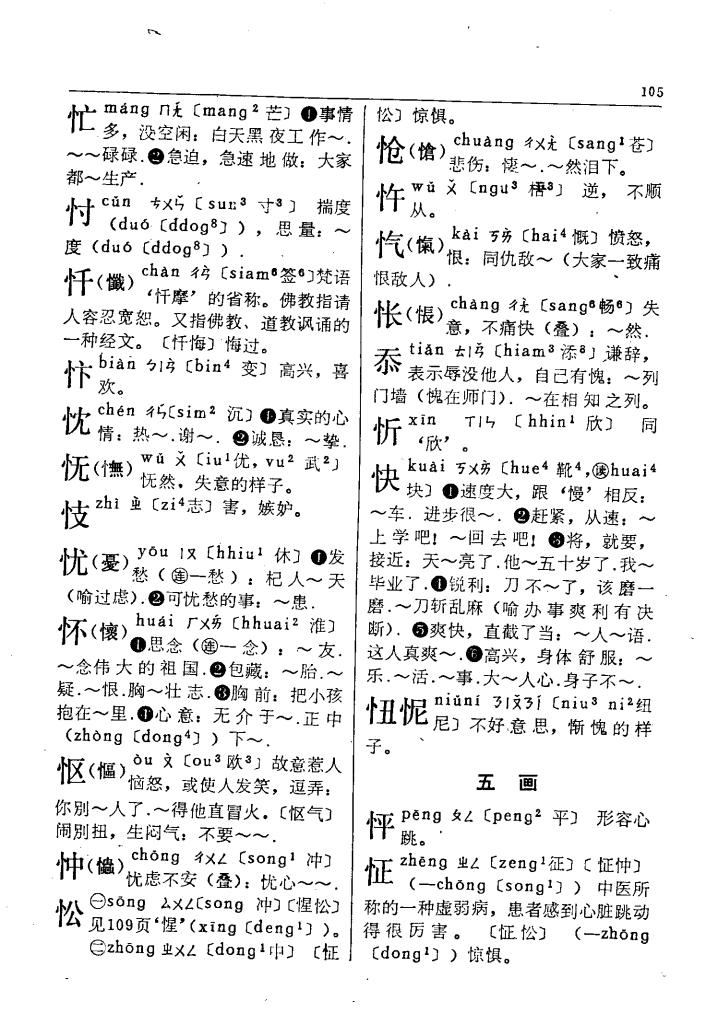 105
忙 máng ㄇㄤˊ〔mang² 芒〕❶事情
多，没空闲：白天黑夜工作～．
～～碌碌．❷急迫，急速地做：大家
都～生产．
忖 cǔn ㄘㄨㄣˇ〔sun³ 寸³〕 揣度
（duó〔ddog⁸〕），思量：～
度（duó〔ddog⁸〕）．
忏(懺) chàn ㄔㄢˋ〔siam⁶签⁶〕梵语
‘忏摩’的省称。佛教指请
人容忍宽恕。又指佛教、道教讽诵的
一种经文。〔忏悔〕悔过。
忭 biàn ㄅㄧㄢˋ〔bin⁴ 变〕高兴，喜
欢。
忱 chén ㄔㄣˊ〔sim² 沉〕❶真实的心
情：热～．谢～．❷诚恳：～挚．
怃(憮) wǔ ㄨˇ〔iu¹优，vu² 武²〕
怃然。失意的样子。
忮 zhì ㄓˋ〔zi⁴志〕害，嫉妒。
忧(憂) yōu ㄧㄡ〔hhiu¹ 休〕❶发
愁（㊣一愁）：杞人～天
（喻过虑）．❷可忧愁的事：～患．
怀(懷) huái ㄏㄨㄞˊ〔hhuai² 淮〕
❶思念（一念）：～友．
～念伟大的祖国．❷包藏：～胎．～
疑．～恨．胸～壮志．❸胸前：把小孩
抱在～里．❹心意：无介于～．正中
（zhòng〔dong⁴〕）下～．
怄(慪) òu ㄡˋ〔ou³欧³〕故意惹人
恼怒，或使人发笑，逗弄：
你别～人了．～得他直冒火。〔怄气〕
闹别扭，生闷气：不要～～．
忡 chōng ㄔㄨㄥ〔song¹ 冲〕
忧虑不安（叠）：忧心～～．
忪 ㊀sōng ㄙㄨㄥ〔song 冲〕〔惺忪〕
见109页‘惺’（xīng〔deng¹〕）。
㊁zhōng ㄓㄨㄥ〔dong¹中〕〔怔
忪〕惊惧。
怆(愴) chuàng ㄔㄨㄤˋ〔sang¹苍〕
悲伤：悽～．～然泪下。
忤 wǔ ㄨˇ〔ngu³ 梧³〕 逆，不顺
从。
忾(愾) kài ㄎㄞˋ〔hai⁴ 慨〕愤怒，
恨：同仇敌～（大家一致痛
恨敌人）．
怅(悵) chàng ㄔㄤˋ〔sang⁶畅⁶〕失
意，不痛快（叠）：～然．
忝 tiǎn ㄊㄧㄢˇ〔hiam³ 添⁸〕谦辞，
表示辱没他人，自己有愧：～列
门墙（愧在师门）．～在相知之列。
忻 xīn ㄒㄧㄣ〔hhin¹ 欣〕 同
‘欣’。
快 kuài ㄎㄨㄞˋ〔hue⁴ 靴⁴，huai⁴
块〕❶速度大，跟‘慢’相反：
～车．进步很～．❷赶紧，从速：～
上学吧！～回去吧！❸将，就要，
接近：天～亮了．他～五十岁了．我～
毕业了．❹锐利：刀不～了，该磨一
磨．～刀斩乱麻（喻办事爽利有决
断）．❺爽快，直截了当：～人～语．
这人真爽～．❻高兴，身体舒服：～
乐．～活．～事．大～人心．身子不～．
忸怩 niǔní ㄋㄧㄡˇㄋㄧˊ〔niu³ ni²纽
尼〕不好意思，惭愧的样
子。
五 画
怦 pēng ㄆㄥ〔peng² 平〕 形容心
跳。
怔 zhēng ㄓㄥ〔zeng¹征〕〔怔忡〕
（—chōng〔song¹〕）中医所
称的一种虚弱病，患者感到心脏跳动
得很厉害。〔怔忪〕（—zhōng
〔dong¹〕）惊惧。